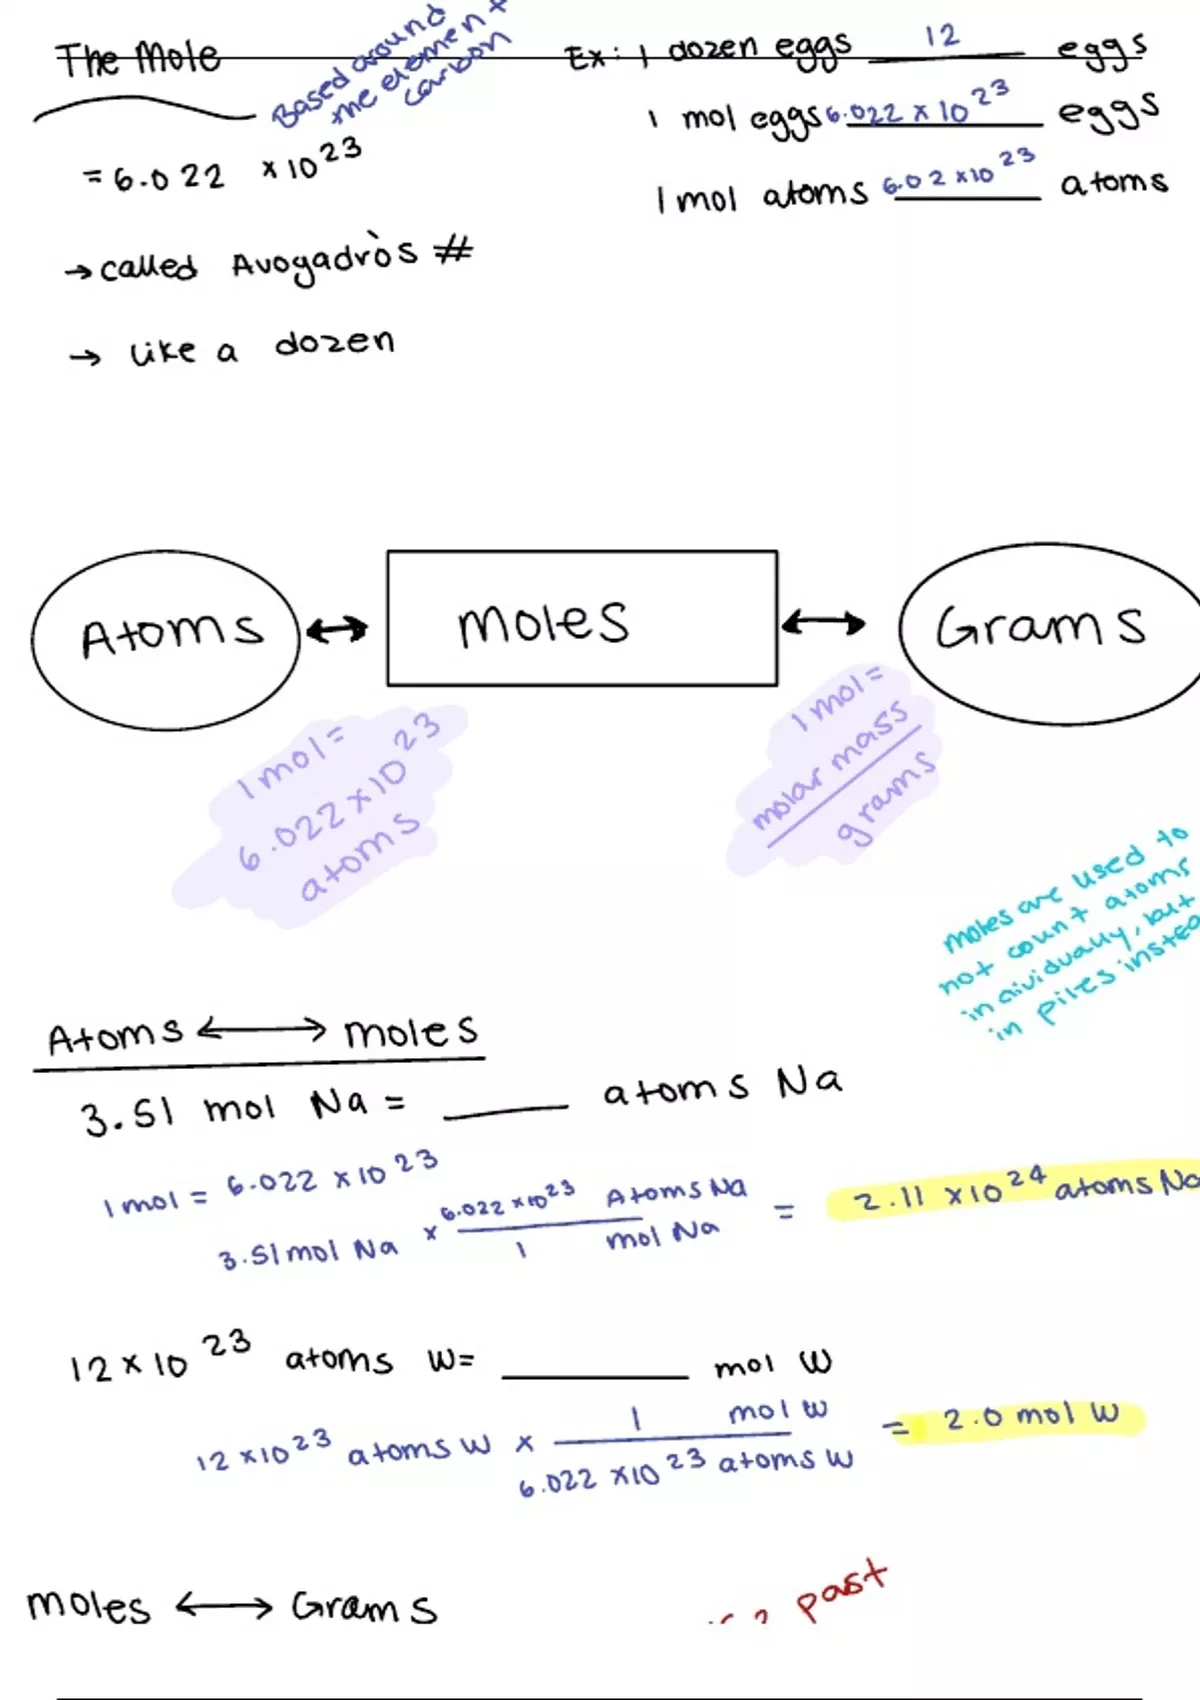 The Mole
Based around
the element
carbon
= 6.022 × 10^23
→ called Avogadro's #
→ like a dozen
Ex: 1 dozen eggs 12 eggs
1 mol eggs 6.022 × 10^23 eggs
1 mol atoms 6.02 × 10^23 atoms
Atoms ↔ moles ↔ Grams
1 mol =
6.022 × 10^23
atoms
1 mol =
molar mass
grams
moles are used to
not count atoms
individually, but
in piles instea
Atoms ⟷ moles
3.51 mol Na = ____ atoms Na
1 mol = 6.022 × 10^23
3.51 mol Na × 6.022 × 10^23 Atoms Na / 1 mol Na = 2.11 × 10^24 atoms Na
12 × 10^23 atoms W = ____ mol W
12 × 10^23 atoms W × 1 mol W / 6.022 × 10^23 atoms W = 2.0 mol W
moles ⟷ Grams
past